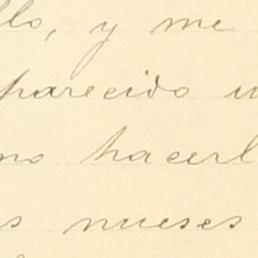 llo, y me
parecido u
no hacerl
s nueses